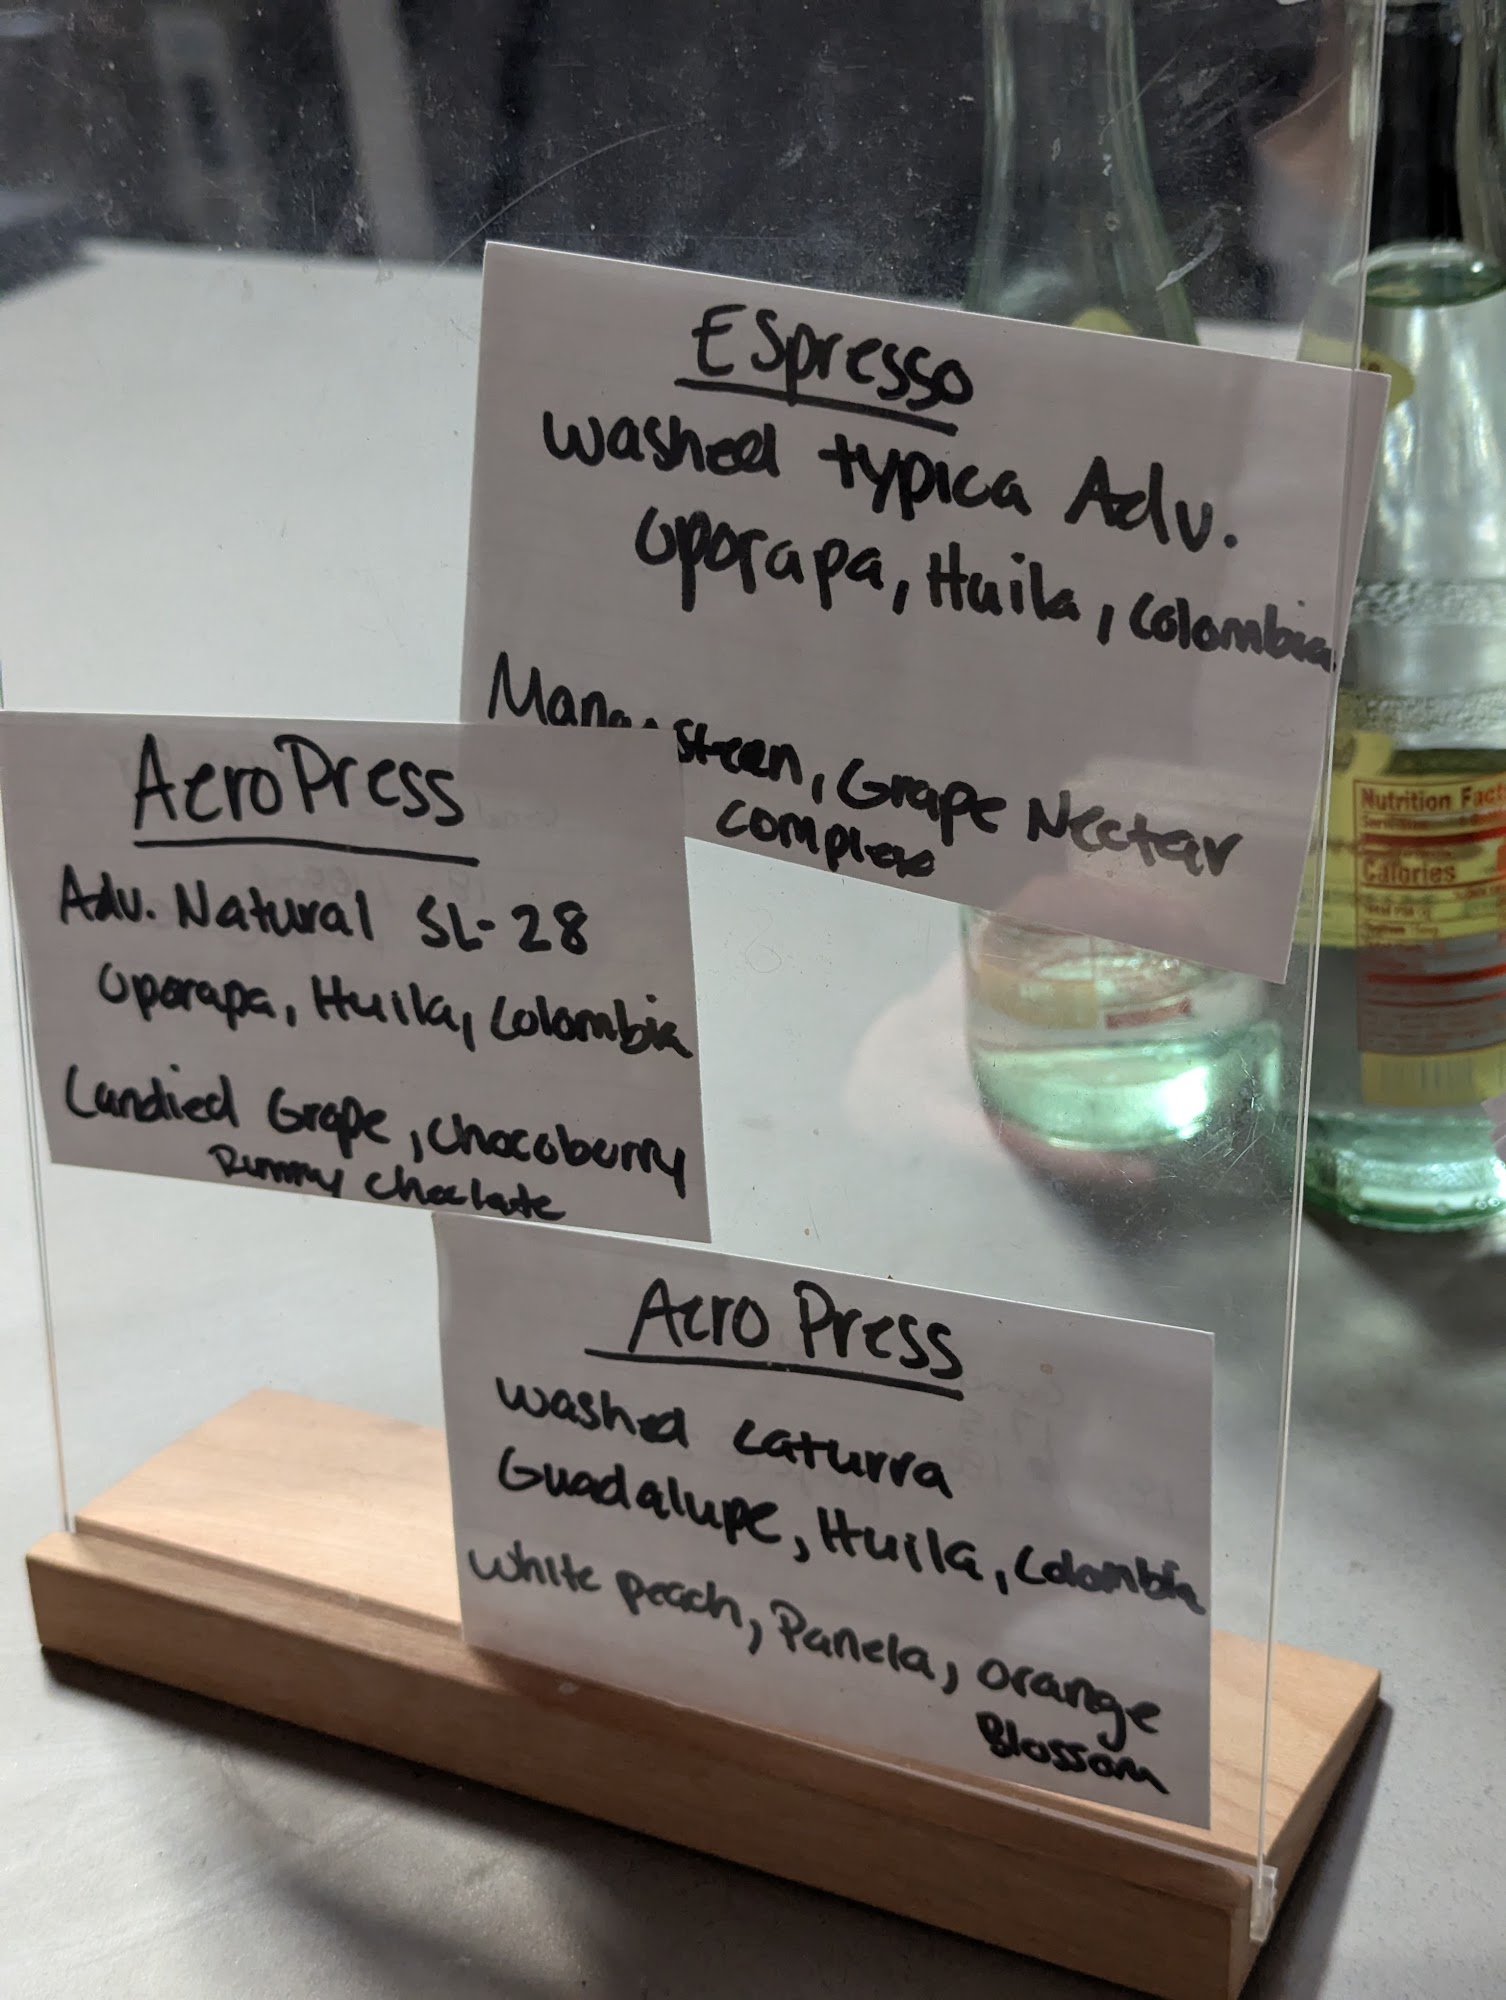 Espresso
washed typica Adv.
Oporapa, Huila, Colombia
steen, Grape Nectar
complex
AeroPress
Adv. Natural SL-28
Oporapa, Huila, Colombia
Candied Grape, Chocoburry
Rummy Choclate
Aero Press
washed caturra
Guadalupe, Huila, Colombia
white peach, Panela, orange
Blossom
Nutrition Facts
Calories